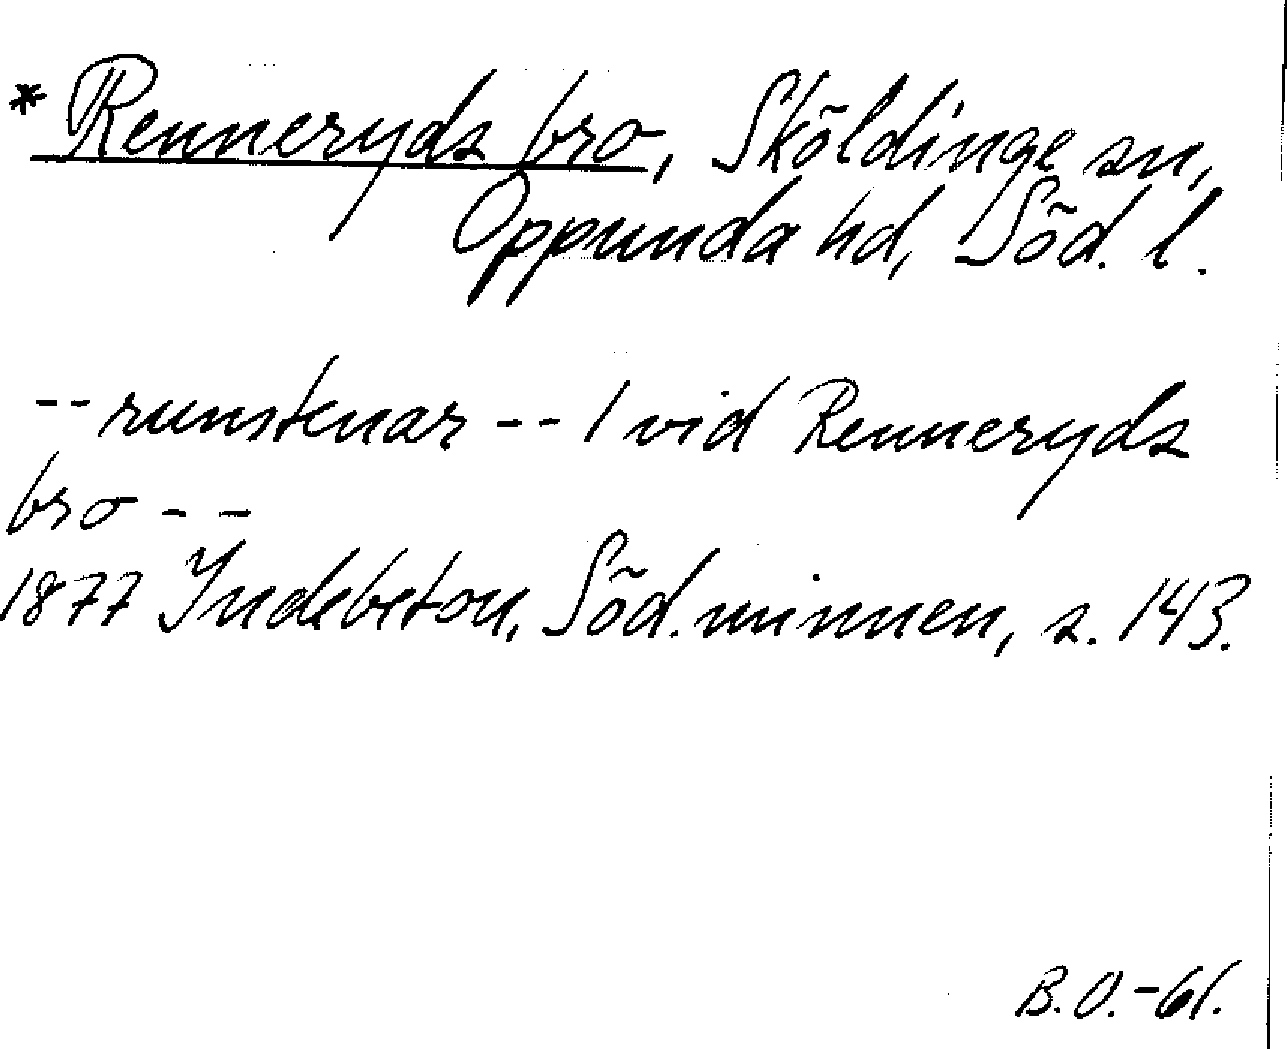 * Renneryds bro, Sköldinge sn,
Oppunda hd, Söd. l.
-- runstenar -- 1 vid Renneryds
bro --
1877 Indebetou, Söd. minnen, s. 143.
B.O. -61.